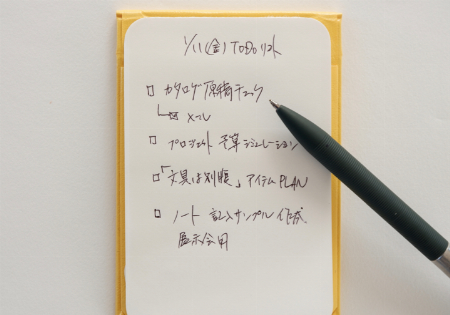 1/11(金) TODOリスト
□ カタログ原稿チェック
└□ メール
□ プロジェクト 予算シミュレーション
□「文具は別腹」アイテムPLAN
□ ノート 記入サンプル作成
展示会用